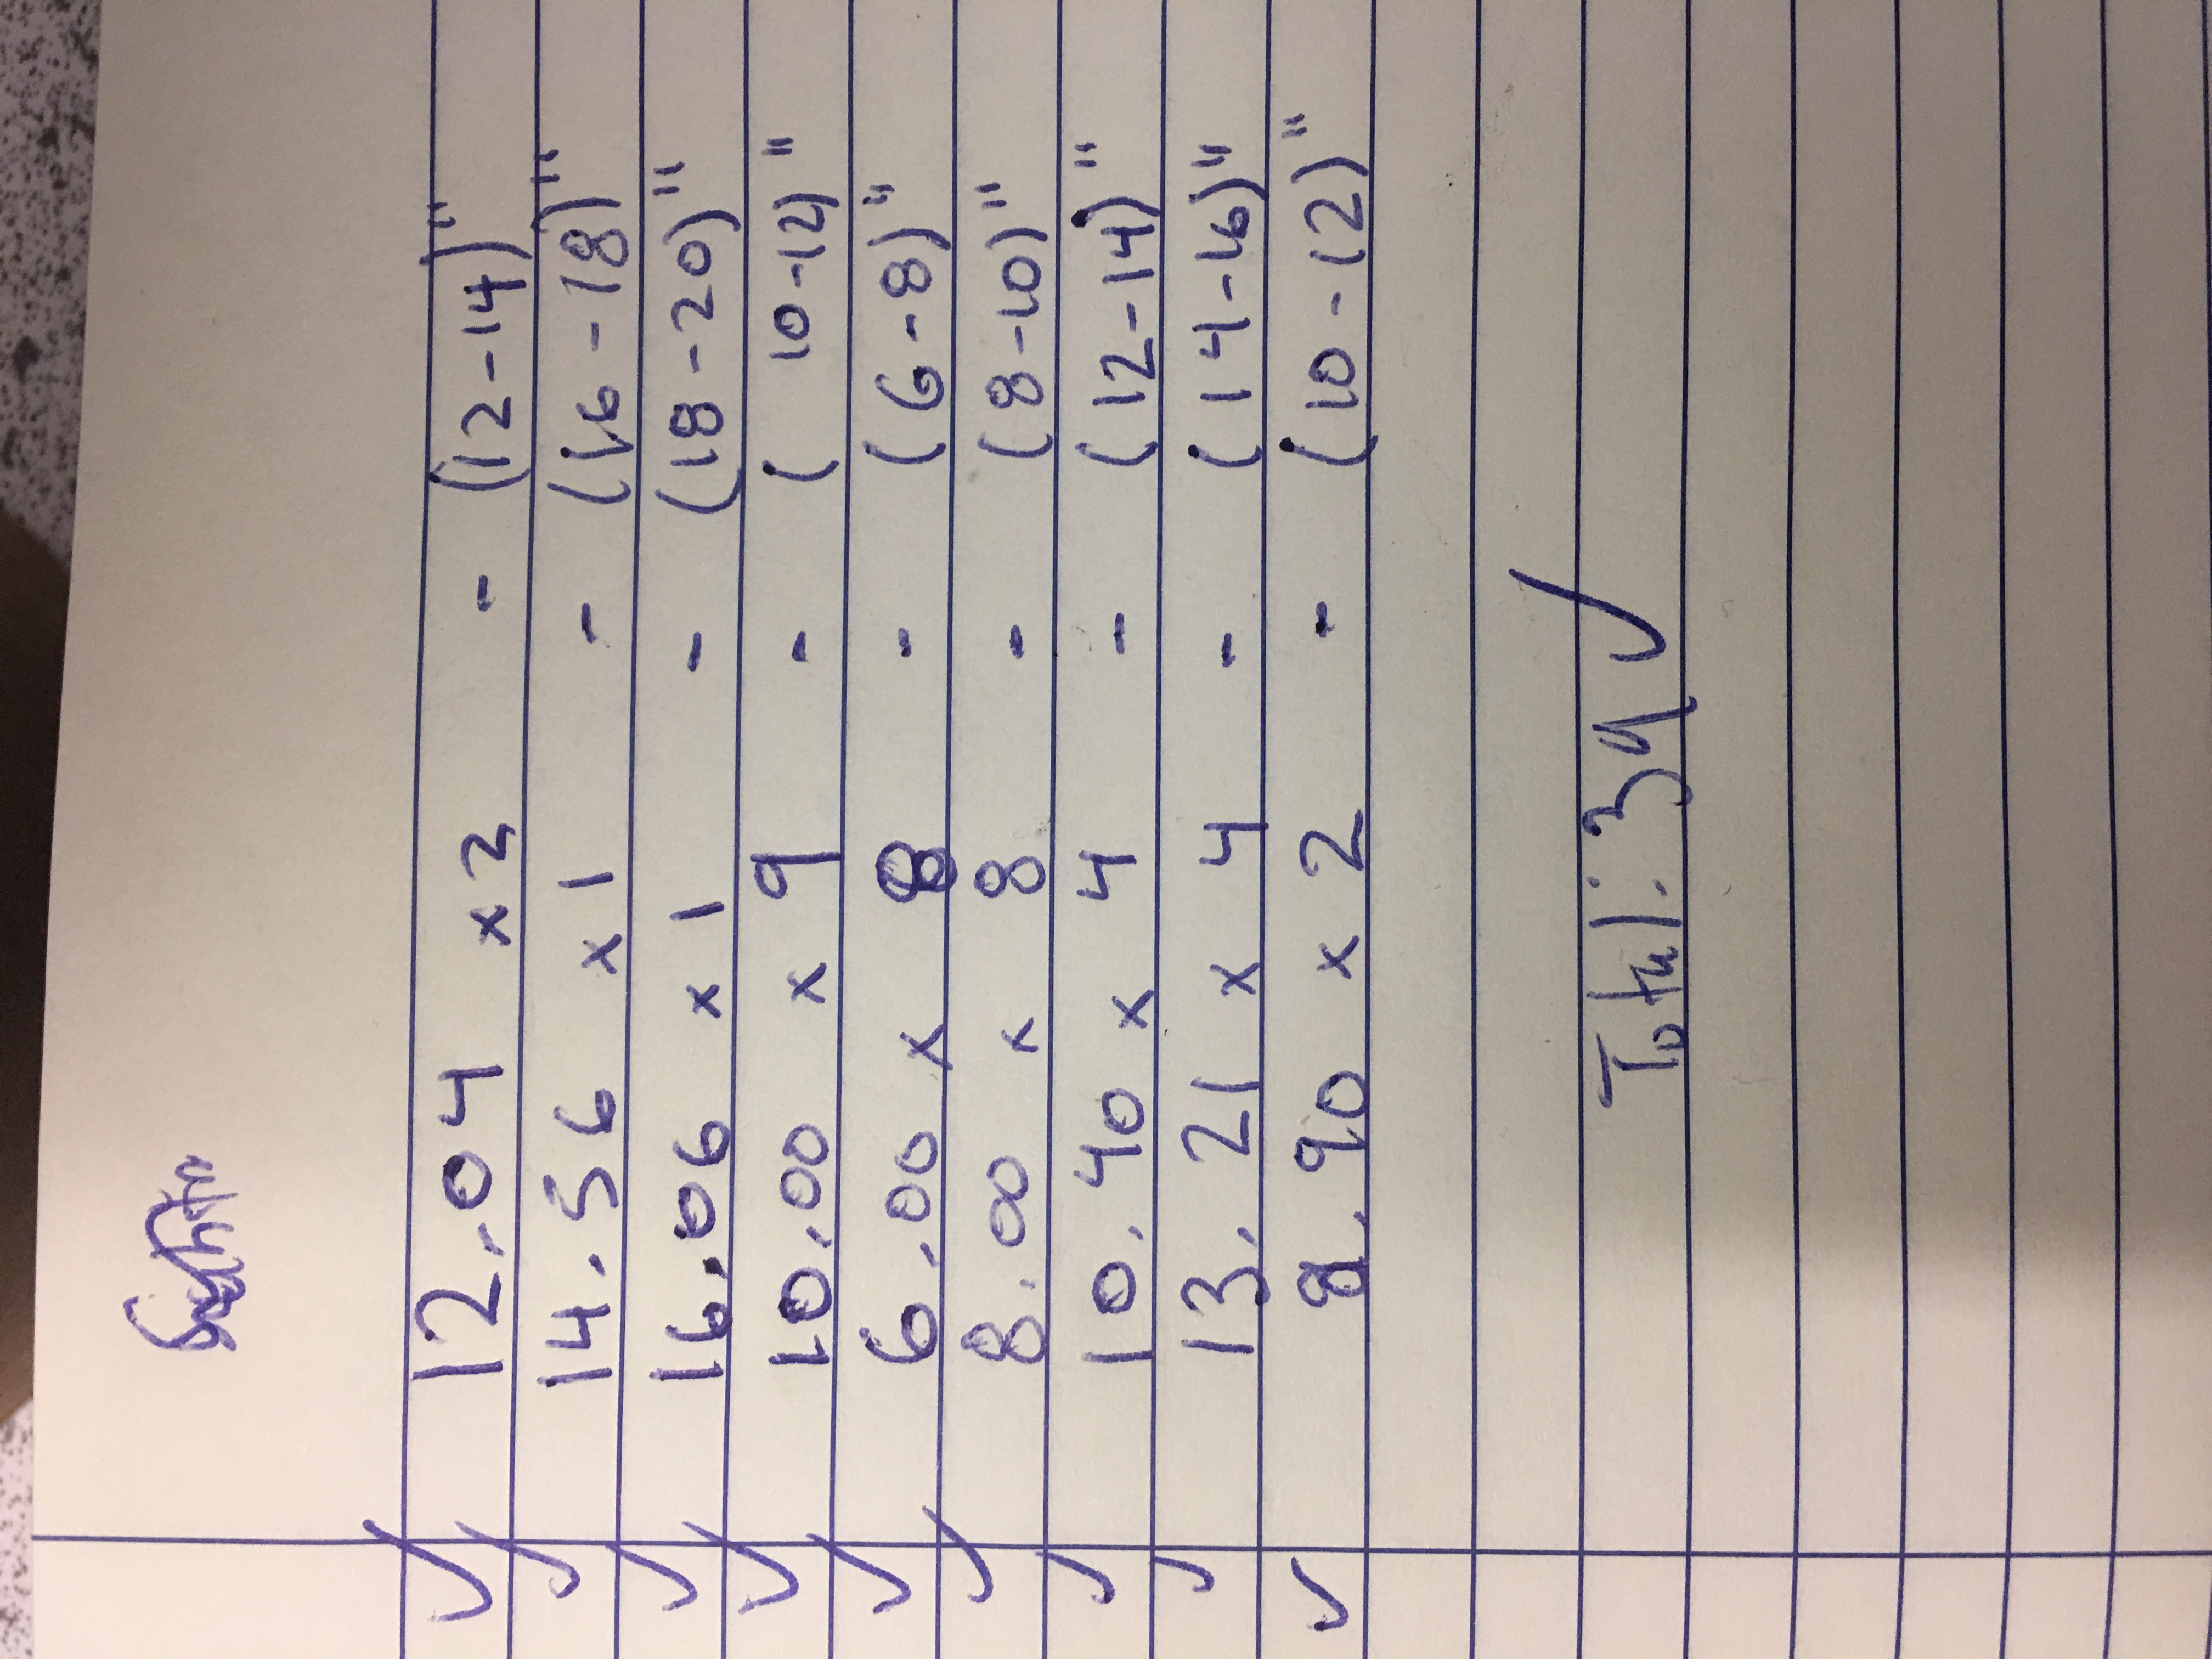 ✓ 12.04 x2 - (12-14)"
✓ 14.56 x 1 - (16-18)"
✓ 16.06 x 1 - (18-20)"
✓ 10.00 x 9 - ( 10-12)"
✓ 6.00 x 8 - (6-8)"
✓ 8.00 x 8 - (8-10)"
✓ 10.40 x 4 - (12-14)"
✓ 13.21 x 4 - (14-16)"
✓ 8.90 x 2 - (10-12)"
Total: 39 ✓